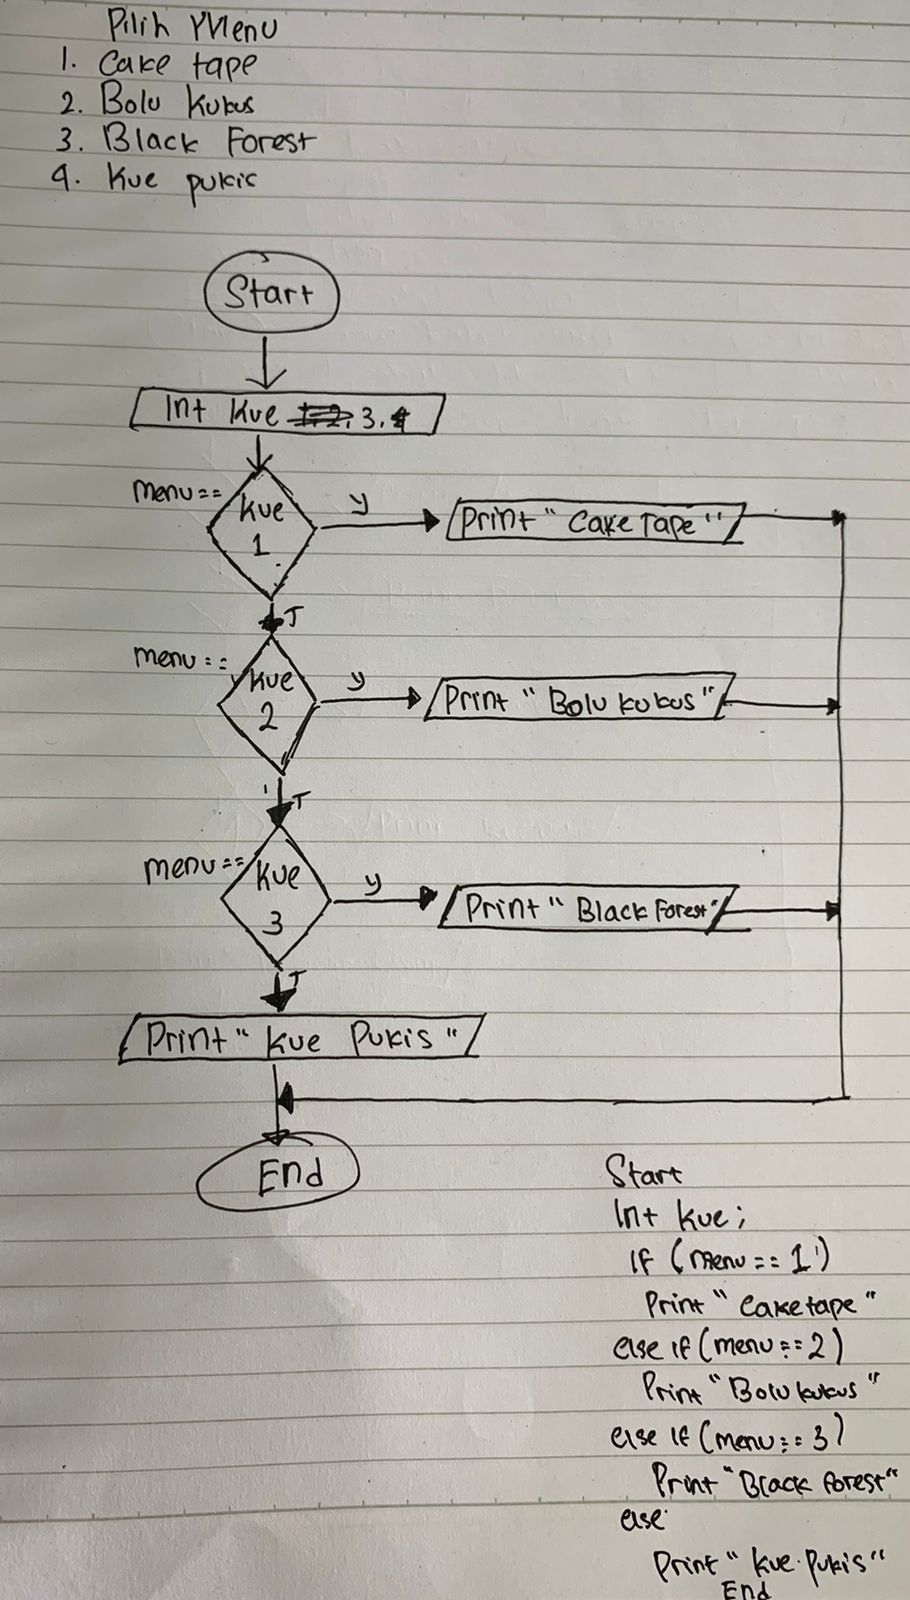 Pilih Menu
1. Cake tape
2. Bolu Kukus
3. Black Forest
4. Kue pukis
Start
Int Kue 3.4
menu==
Kue
1
y
Print " Cake Tape "
T
menu ==
Kue
2
y
Print " Bolu kukus "
T
menu==
Kue
3
y
Print " Black Forest "
T
Print " Kue Pukis "
End
Start
Int Kue ;
If ( menu == 1 )
Print " Cake tape "
else if ( menu == 2 )
Print " Bolu kukus "
else if ( menu == 3 )
Print " Black Forest "
else
Print " Kue Pukis "
End